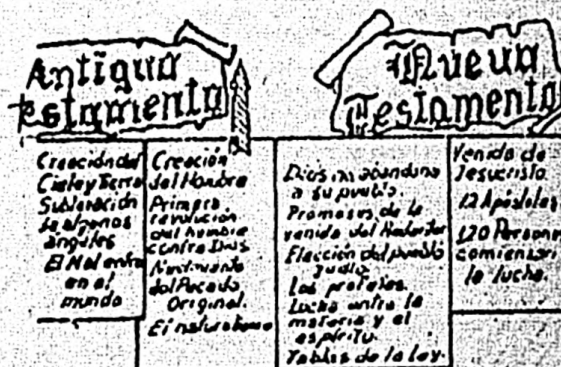 Antiguo
Testamento
Nueva
Testamento
Creación del
Cielo y Tierra
Sublevación
de algunos
ángeles
El Mal entra
en el
mundo
Creación
del Hombre
Primera
revolución
del hombre
contra Dios
Nacimiento
del Pecado
Original.
El naturalismo
Dios no abandona
a su pueblo.
Promesas de la
venida del Redentor
Elección del pueblo
Judío
Los profetas.
Lucha entre la
materia y el
espíritu.
Tablas de la ley.
Venida de
Jesucristo
12 Apóstoles
120 Personas
comienzan
la lucha.